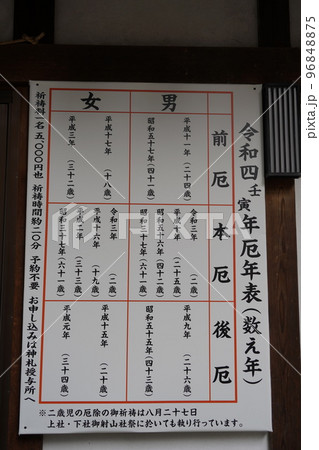 令和四壬寅年厄年表(数え年)
前厄
本厄
後厄
男
平成十一年(二十四歳)
昭和五十七年(四十一歳)
令和三年(二歳)
平成十年(二十五歳)
昭和五十六年(四十二歳)
昭和三十七年(六十一歳)
平成九年(二十六歳)
昭和五十五年(四十三歳)
女
平成十七年(十八歳)
平成三年(三十二歳)
令和三年(二歳)
平成十六年(十九歳)
平成二年(三十三歳)
昭和三十七年(六十一歳)
平成十五年(二十歳)
平成元年(三十四歳)
祈祷料一名 五、〇〇〇円也 祈祷時間約二〇分 予約不要 お申し込みは神札授与所へ
※二歳児の厄除の御祈祷は八月二十七日
上社・下社御射山社祭に於いても執り行っています。
PIXTA
96848875